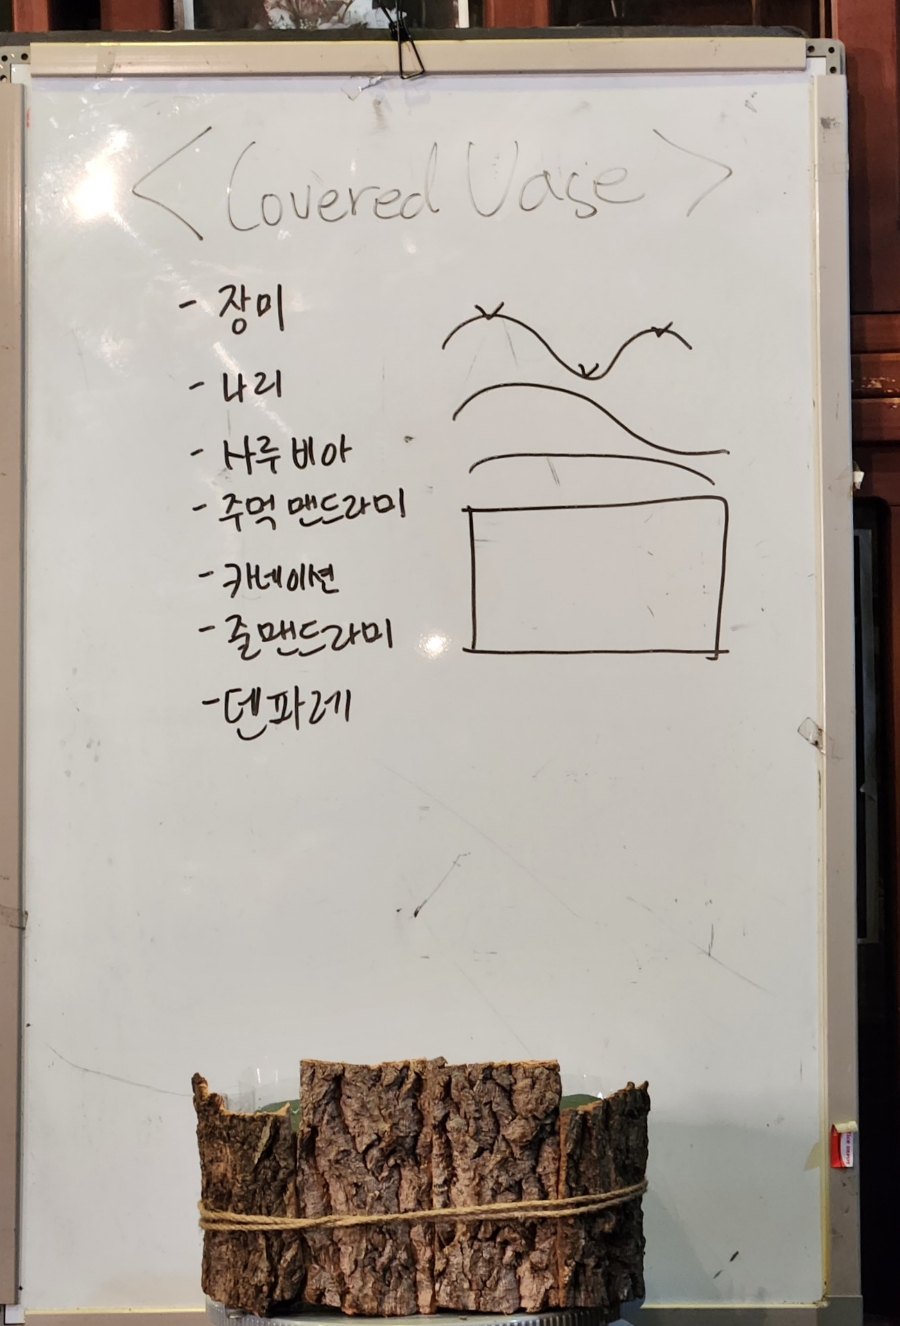 <Covered Vase>
- 장미
- 나리
- 사루비아
- 주먹 맨드라미
- 카네이션
- 줄맨드라미
- 덴파레